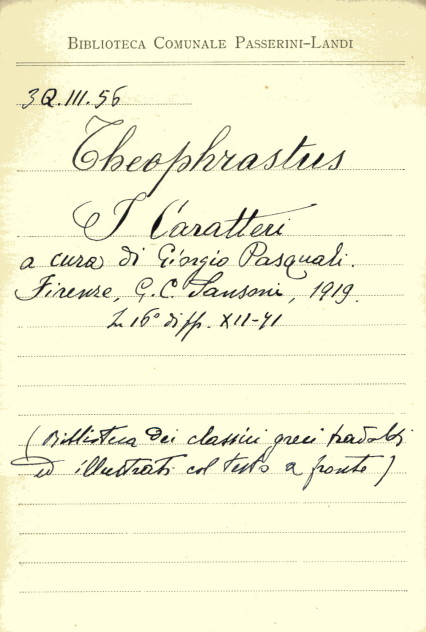 BIBLIOTECA COMUNALE PASSERINI-LANDI
3Q.III.56
Theophrastus
I Caratteri
a cura di Giorgio Pasquali.
Firenze, G.C. Sansoni, 1919.
In 16° pp. XII-91
(Biblioteca dei classici greci tradotti
ed illustrati col testo a fronte)